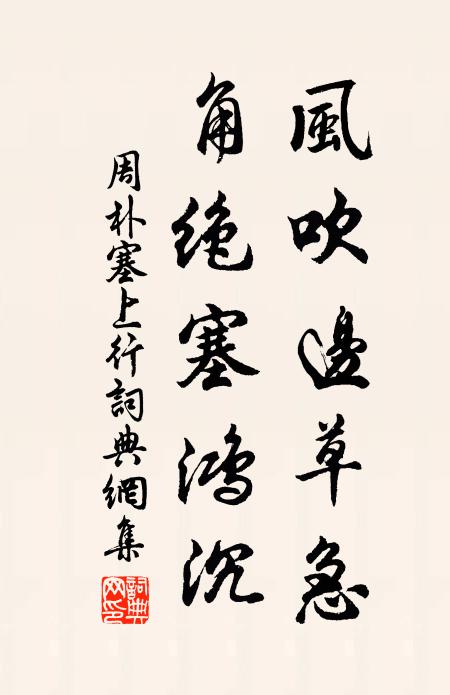 風吹邊草急
角絶塞鴻沉
周朴塞上行詞典網集
詞典網印